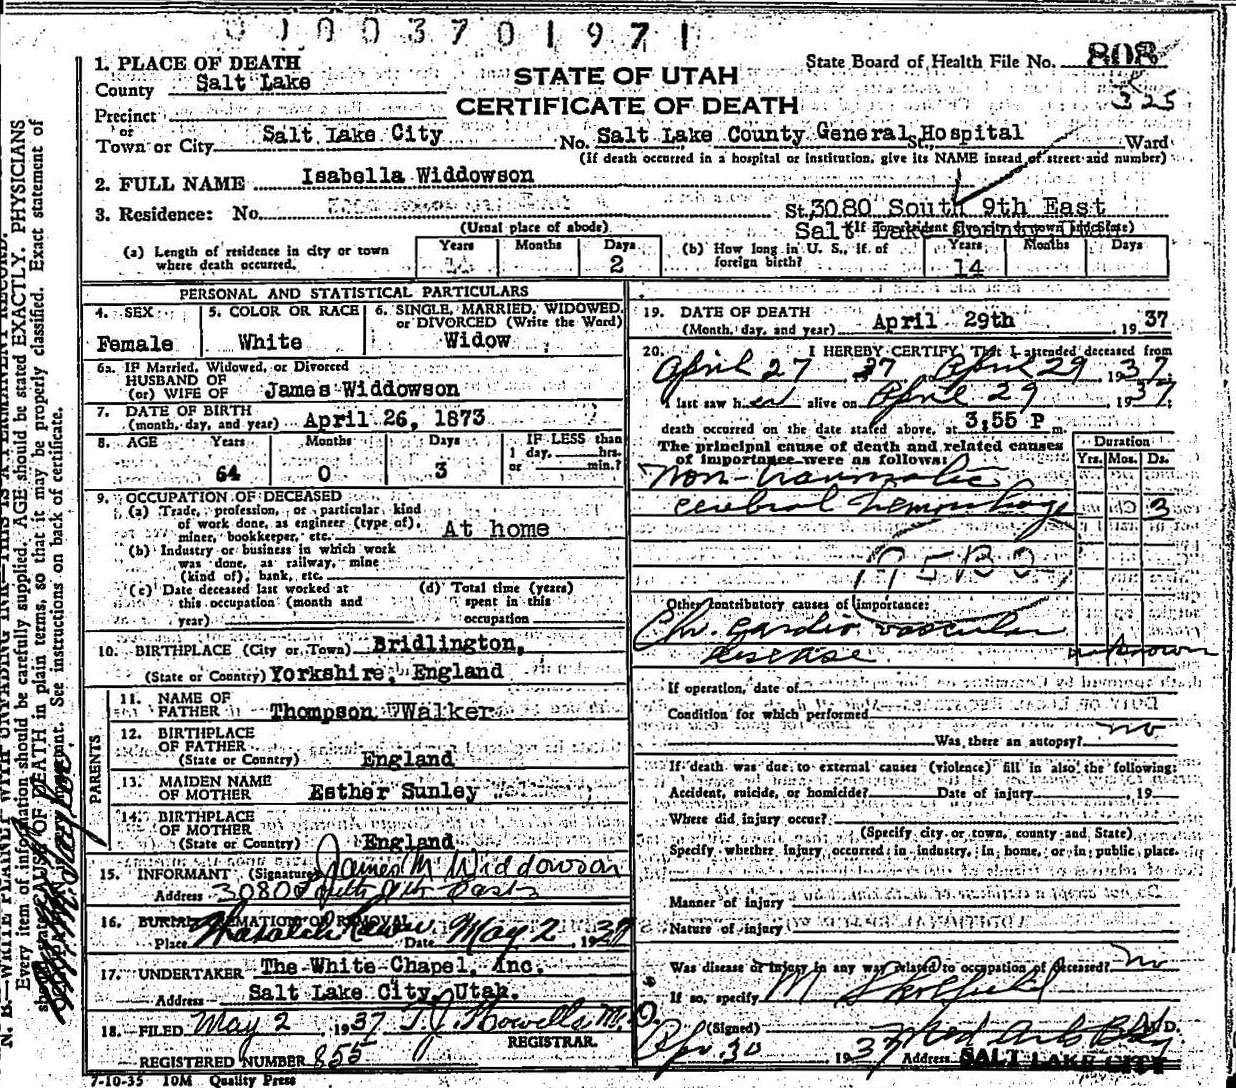 0100370 1971
1. PLACE OF DEATH
State Board of Health File No. 808
County Salt Lake
STATE OF UTAH
325
CERTIFICATE OF DEATH
Precinct
or
Town or City Salt Lake City No. Salt Lake County General Hospital St., Ward
(If death occurred in a hospital or institution, give its NAME insead of street and number)
2. FULL NAME Isabella Widdowson
3. Residence: No. St. 3080 South 9th East
(Usual place of abode) Salt Lake County Utah
(a) Length of residence in city or town where death occurred. Years Months Days 2
(b) How long in U. S., if of foreign birth? Years 14 Months Days
PERSONAL AND STATISTICAL PARTICULARS
4. SEX Female
5. COLOR OR RACE White
6. SINGLE, MARRIED, WIDOWED, or DIVORCED (Write the Word) Widow
6a. IF Married, Widowed, or Divorced
HUSBAND OF
(or) WIFE OF James Widdowson
7. DATE OF BIRTH
(month, day, and year) April 26, 1873
8. AGE Years 64 Months 0 Days 3 IF LESS than 1 day, hrs. or min.?
9. OCCUPATION OF DECEASED
(a) Trade, profession, or particular kind
of work done, as engineer (type of),
miner, bookkeeper, etc. At home
(b) Industry or business in which work
was done, as railway, mine
(kind of), bank, etc.
(c) Date deceased last worked at
this occupation (month and
year)
(d) Total time (years)
spent in this
occupation
10. BIRTHPLACE (City or Town) Bridlington,
(State or Country) Yorkshire, England
PARENTS
11. NAME OF
FATHER Thompson Walker
12. BIRTHPLACE
OF FATHER
(State or Country) England
13. MAIDEN NAME
OF MOTHER Esther Sunley
14. BIRTHPLACE
OF MOTHER
(State or Country) England
15. INFORMANT (Signature) James M Widdowson
Address 3080 South 9th East
16. BURIAL, CREMATION OR REMOVAL
Place Wasatch Lawn Date May 2, 1937
17. UNDERTAKER The White Chapel, Inc.
Address Salt Lake City, Utah.
18. FILED May 2, 1937 T. J. Howells M. D.
REGISTRAR.
REGISTERED NUMBER 855
7-10-35 10M Quality Press
19. DATE OF DEATH
(Month, day, and year) April 29th, 1937
20. I HEREBY CERTIFY, That I attended deceased from
April 27 1937 April 29, 1937
I last saw her alive on April 29, 1937;
death occurred on the date stated above, at 3,55 P m.
The principal cause of death and related causes
of importance were as follows:
Duration
Yrs. Mos. Ds.
Non-traumatic
cerebral hemorrhage 3
Other contributory causes of importance:
Chr. Cardio vascular
disease unknown
If operation, date of
Condition for which performed
Was there an autopsy? no
If death was due to external causes (violence) fill in also the following:
Accident, suicide, or homicide? Date of injury , 19
Where did injury occur?
(Specify city or town, county and State)
Specify whether injury occurred in industry, in home, or in public place.
Manner of injury
Nature of injury
Was disease or injury in any way related to occupation of deceased? no
If so, specify
(Signed) M Skolfield M.D.
Apr. 30, 1937 Address Med Arts Bldg
SALT LAKE CITY
N. B.—WRITE PLAINLY WITH UNFADING INK—THIS IS A PERMANENT RECORD.
Every item of information should be carefully supplied. AGE should be stated EXACTLY. PHYSICIANS
should state CAUSE OF DEATH in plain terms, so that it may be properly classified. Exact statement of
See instructions on back of certificate.